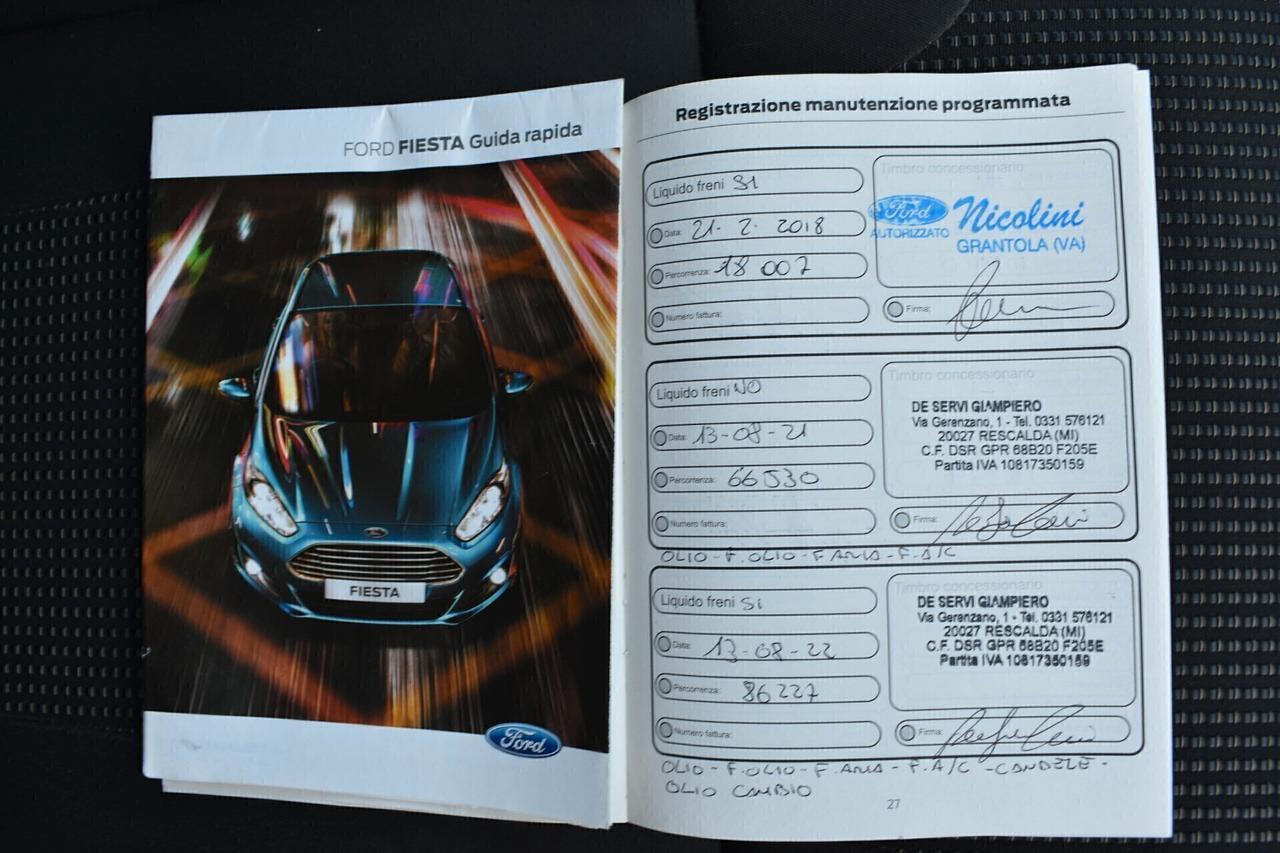 FORD FIESTA Guida rapida
FIESTA
Ford
Registrazione manutenzione programmata
Liquido freni SI
Data: 21. 2. 2018
Percorrenza: 18 007
Numero fattura:
Timbro concessionario
Ford Nicolini
AUTORIZZATO
GRANTOLA (VA)
Firma:
Liquido freni NO
Data: 13-08-21
Percorrenza: 66530
Numero fattura:
Timbro concessionario
DE SERVI GIAMPIERO
Via Gerenzano, 1 - Tel. 0331 576121
20027 RESCALDA (MI)
C.F. DSR GPR 68B20 F205E
Partita IVA 10817350159
Firma:
OLIO - F. OLIO - F ARIA - F. A/C
Liquido freni Si
Data: 12-08-22
Percorrenza: 86227
Numero fattura:
Timbro concessionario
DE SERVI GIAMPIERO
Via Gerenzano, 1 - Tel. 0331 576121
20027 RESCALDA (MI)
C.F. DSR GPR 68B20 F205E
Partita IVA 10817350159
Firma:
OLIO - F. OLIO - F. ARIA - F. A/C - CANDELE -
OLIO CAMBIO
27